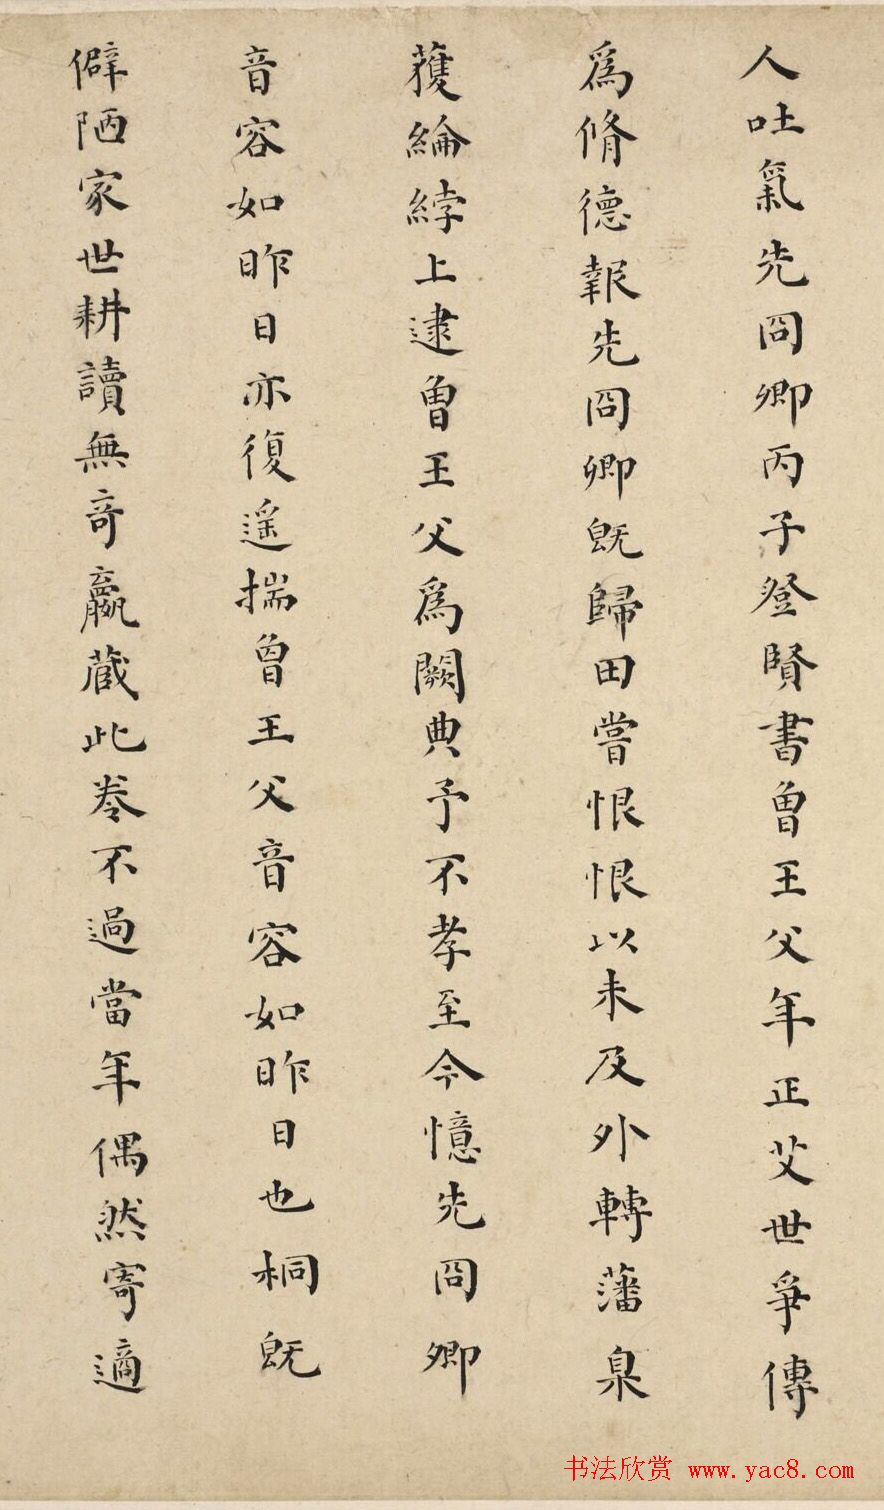 人吐氣先冏卿丙子登賢書曾王父年正艾世爭傳
為脩德報先冏卿既歸田嘗恨恨以未及外轉藩臬
獲綸綍上逮曾王父為闕典予不孝至今憶先冏卿
音容如昨日亦復遥揣曾王父音容如昨日也桐既
僻陋家世耕讀無奇羸蔵此卷不過當年偶然寄適
书法欣赏 www.yac8.com